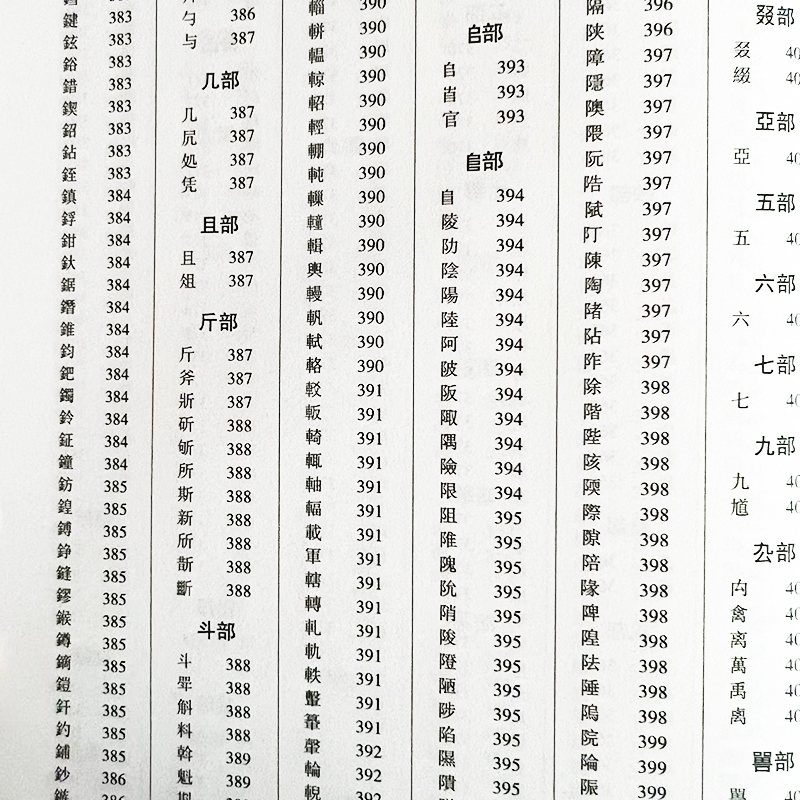 鍵 383
鉉 383
鋊 383
錯 383
鍥 383
鉊 383
鉆 383
銍 383
鎮 384
鋝 384
鉗 384
釱 384
鋸 384
鐕 384
錐 384
鈞 384
鈀 384
鐲 384
鈴 384
鉦 384
鐘 384
鈁 385
鍠 385
鎛 385
錚 385
鏠 385
鏐 385
鍭 385
鐏 385
鏑 385
鎧 385
釬 385
釣 385
鋪 385
鈔 386
386
勺 386
与 387
几部
几 387
凥 387
処 387
凭 387
且部
且 387
俎 387
斤部
斤 387
斧 387
斨 387
斫 388
斪 388
所 388
斯 388
新 388
斦 388
斮 388
斷 388
斗部
斗 388
斝 388
斛 388
料 388
斡 389
魁 389
輺 390
輧 390
輼 390
輬 390
軺 390
輕 390
輣 390
軘 390
轈 390
䡴 390
輯 390
輿 390
軓 390
軾 390
輅 390
䡊 391
輢 391
輒 391
軸 391
輻 391
載 391
軍 391
轄 391
轉 391
軋 391
軌 391
軼 391
輂 391
輪 392
輗 392
𠂤部
𠂤 393
官 393
𨸏部
𨸏 394
陵 394
阞 394
陰 394
陽 394
陸 394
阿 394
陂 394
阪 394
陬 394
隅 394
險 394
限 394
阻 395
陮 395
隗 395
阭 395
陗 395
陖 395
隥 395
陋 395
陟 395
陷 395
隰 395
隤 395
隔 396
陜 396
障 397
隱 397
隩 397
隈 397
阮 397
陼 397
阽 397
阼 397
陳 397
陶 397
除 398
階 398
陛 398
陔 398
際 398
隙 398
陪 398
隊 398
陴 398
隍 398
阹 398
陲 398
隖 398
院 399
陯 399
陙 399
叕部
叕
綴
亞部
亞
五部
五
六部
六
七部
七
九部
九
馗
厹部
禽
离
萬
禹
嘼部